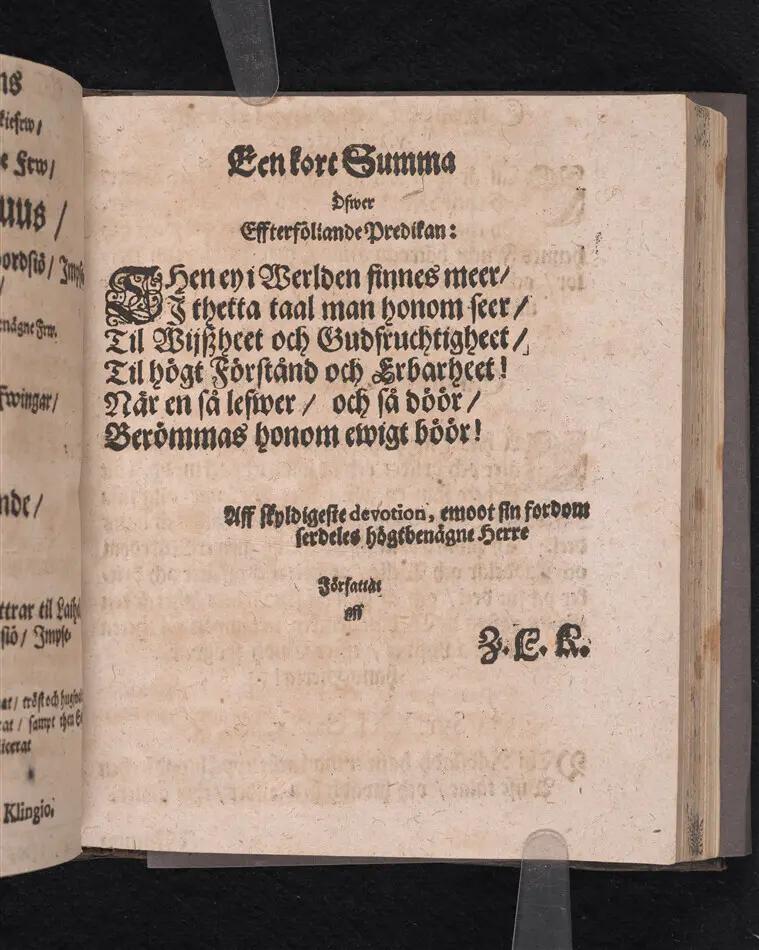 kiefrw /
Frw /
uus /
oordsiö /
nägne Frw.
nde /
ttrar til
siö /
at / tröst och
rat / sampt then
icerat
Klingio.
Een kort Summa
Öfwer
Effterföliande Predikan:
THen ey i Werlden finnes meer /
I thetta taal man honom seer /
Til Wijßheet och Gudfruchtigheet /
Til högt Förstånd och Erbarheet!
När en så lefwer / och så döör /
Berömmas honom ewigt böör!
Aff skyldigeste devotion, emoot sin fordom
serdeles högtbenägne Herre
Författat
aff
Z. E. K.